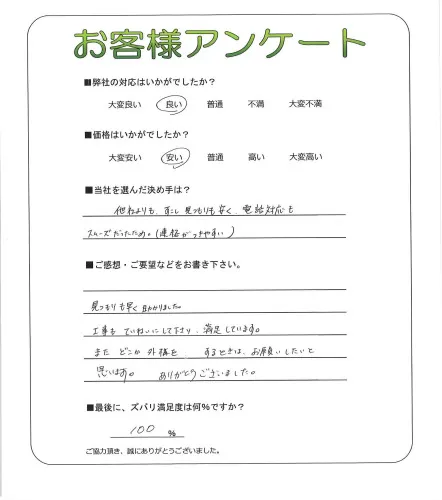 お客様アンケート
■弊社の対応はいかがでしたか？
大変良い 良い 普通 不満 大変不満
■価格はいかがでしたか？
大変安い 安い 普通 高い 大変高い
■当社を選んだ決め手は？
他社よりも、すこし見つもりも安く、電話対応も
スムーズだったため。(連絡がつきやすい)
■ご感想・ご要望などをお書き下さい。
見つもりも早く助かりました。
工事も ていねいにして下さり、満足しています。
また どこか 外構を するときは、お願いしたいと
思います。 ありがとうございました。
■最後に、ズバリ満足度は何％ですか？
100 ％
ご協力頂き、誠にありがとうございました。